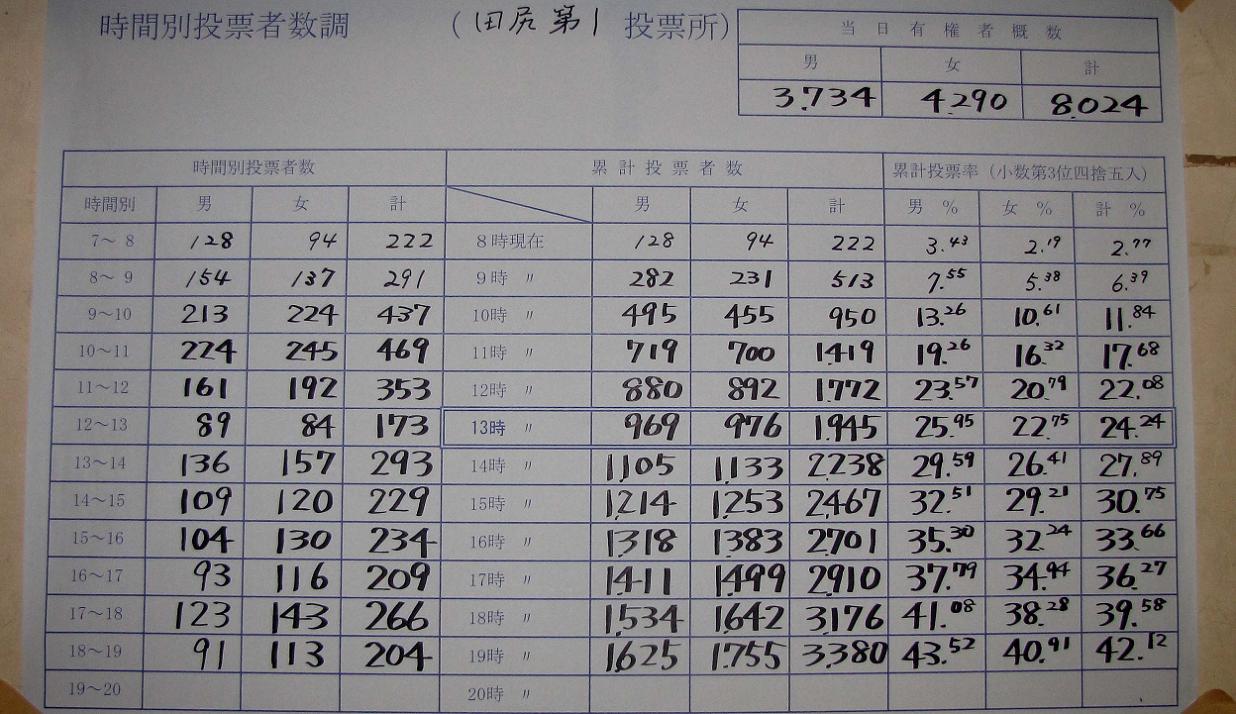 時間別投票者数調 (田尻第1 投票所)
当日有権者概数
男 女 計
3,734 4,290 8,024
時間別投票者数 累計投票者数 累計投票率 (小数第3位四捨五入)
時間別 男 女 計 男 女 計 男 % 女 % 計 %
7〜8 128 94 222 8時現在 128 94 222 3.43 2.19 2.77
8〜9 154 137 291 9時 〃 282 231 513 7.55 5.38 6.39
9〜10 213 224 437 10時 〃 495 455 950 13.26 10.61 11.84
10〜11 224 245 469 11時 〃 719 700 1,419 19.26 16.32 17.68
11〜12 161 192 353 12時 〃 880 892 1,772 23.57 20.79 22.08
12〜13 89 84 173 13時 〃 969 976 1,945 25.95 22.75 24.24
13〜14 136 157 293 14時 〃 1,105 1,133 2,238 29.59 26.41 27.89
14〜15 109 120 229 15時 〃 1,214 1,253 2,467 32.51 29.21 30.75
15〜16 104 130 234 16時 〃 1,318 1,383 2,701 35.30 32.24 33.66
16〜17 93 116 209 17時 〃 1,411 1,499 2,910 37.79 34.94 36.27
17〜18 123 143 266 18時 〃 1,534 1,642 3,176 41.08 38.28 39.58
18〜19 91 113 204 19時 〃 1,625 1,755 3,380 43.52 40.91 42.12
19〜20 20時 〃